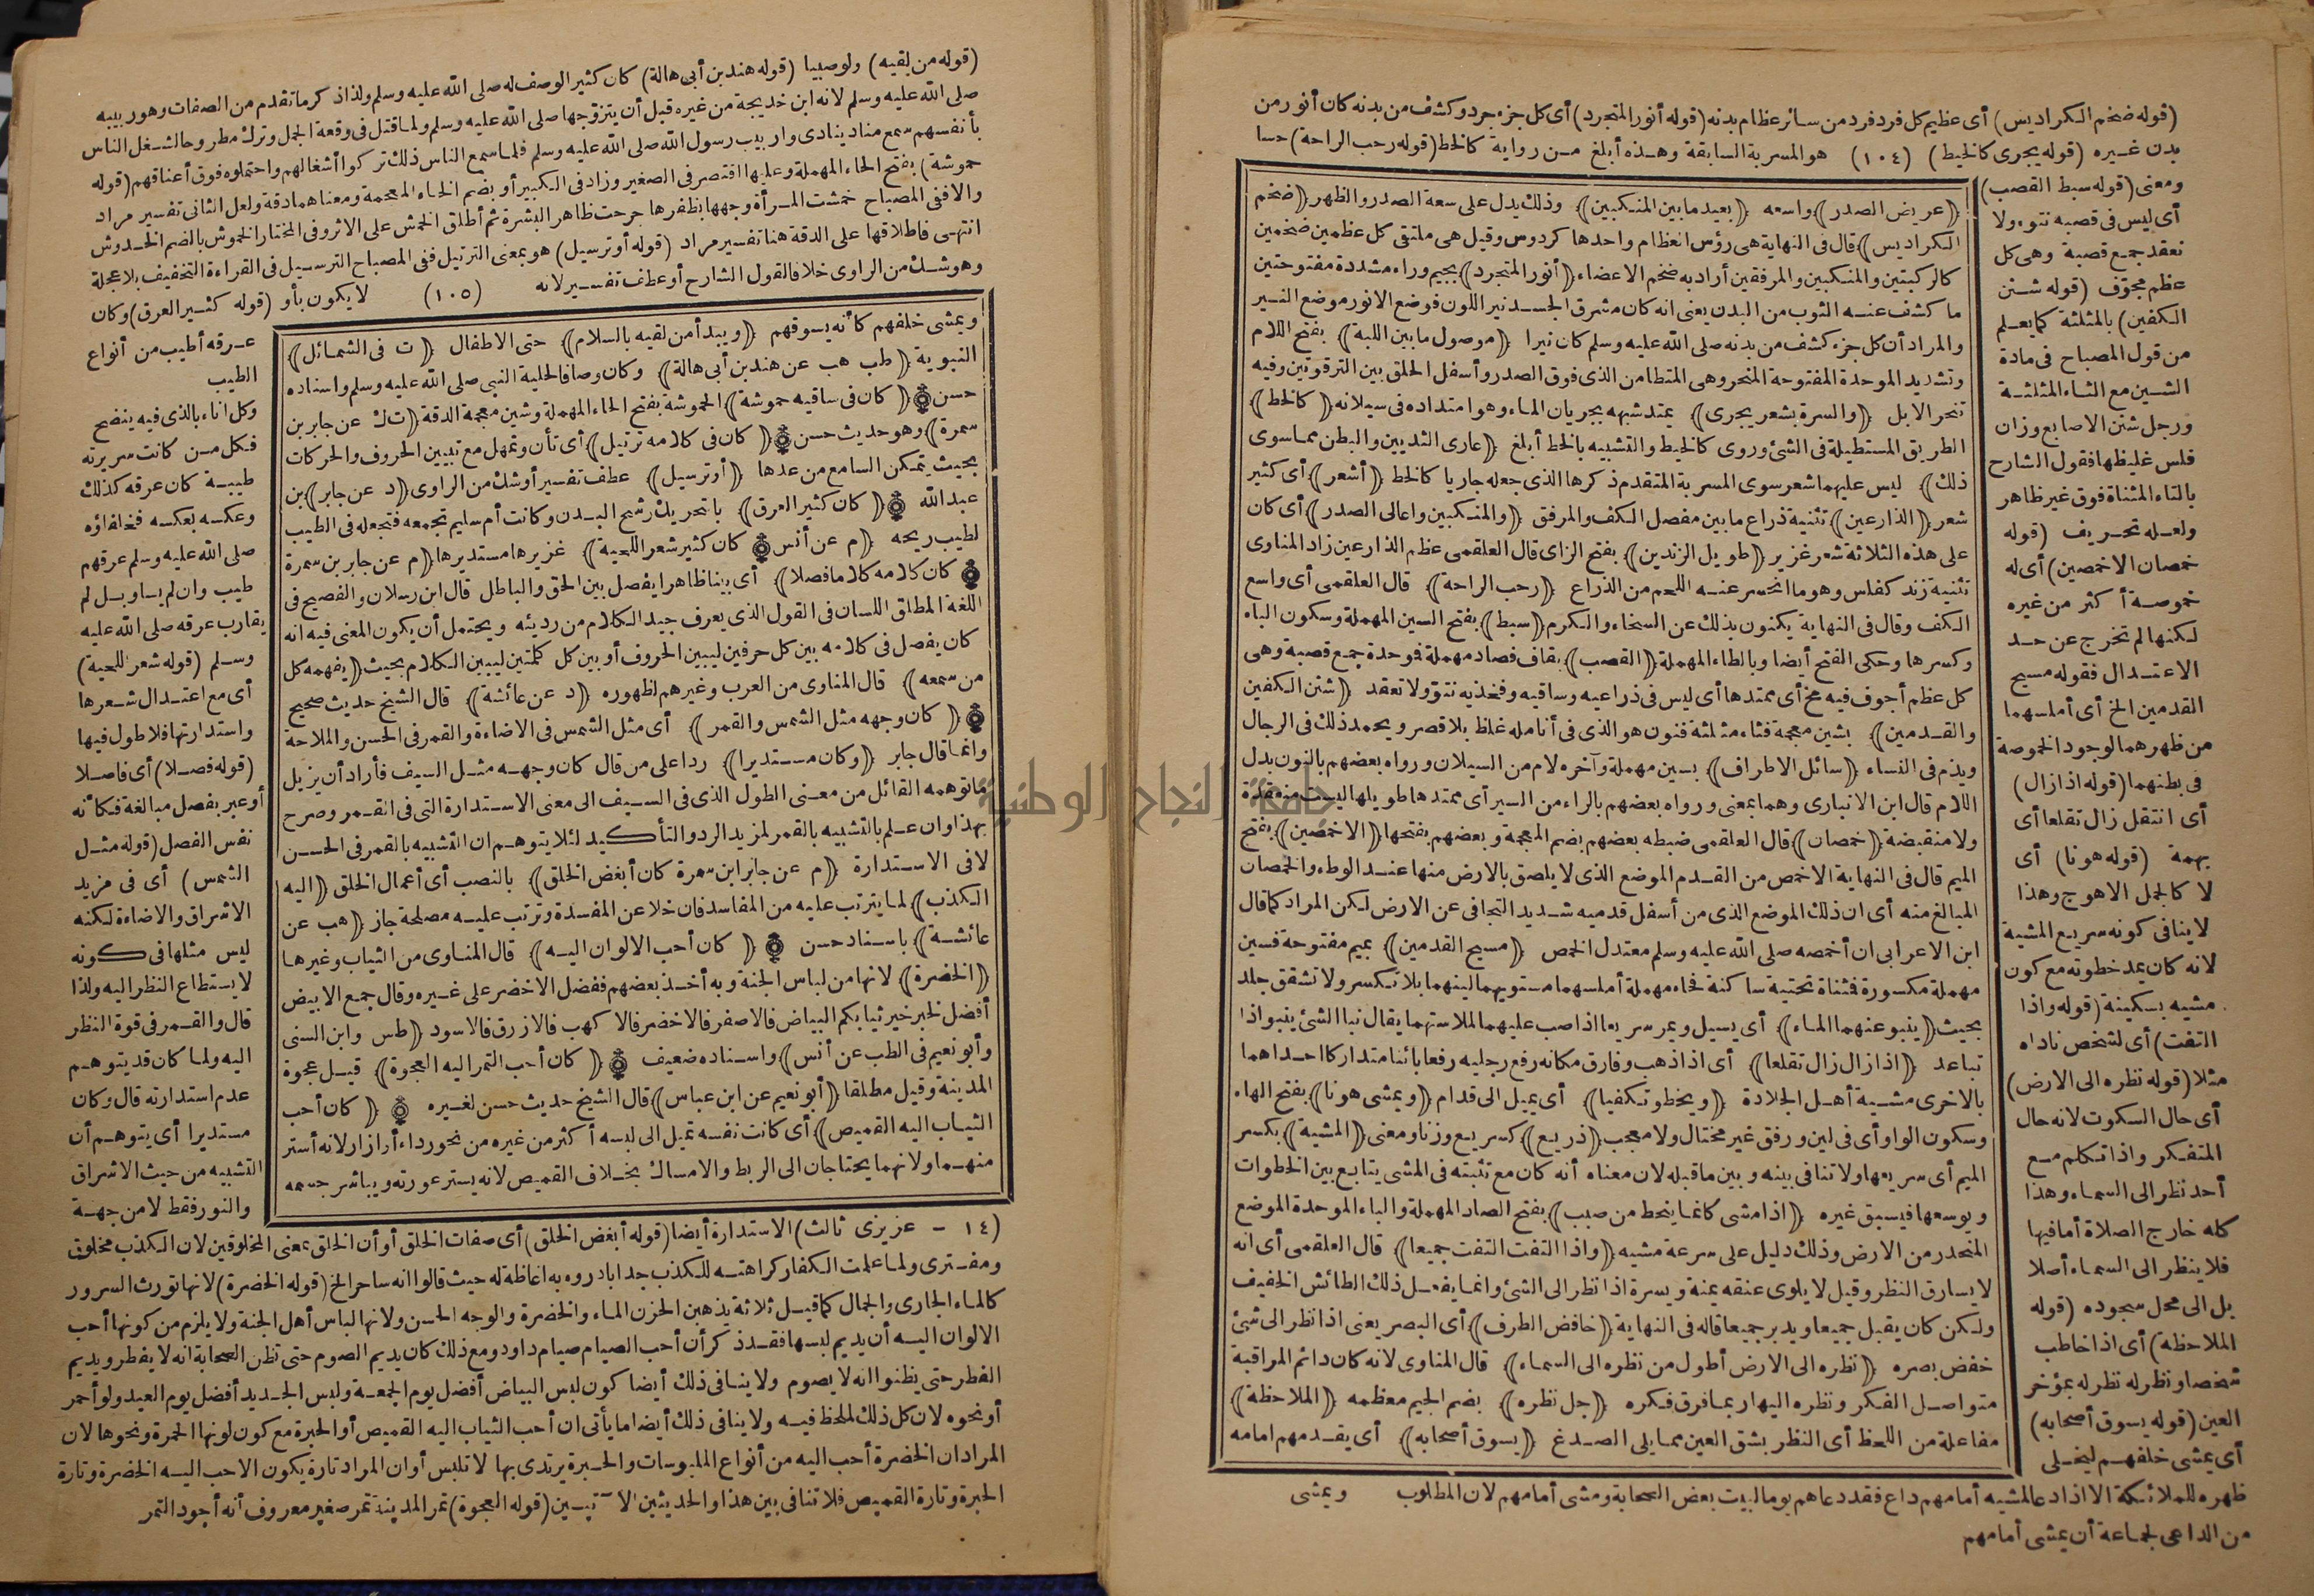 (قوله ضخم الكراديس) أى عظيم كل فرد فرد من سائر عظام بدنه (قوله أنور المتجرد) أى كل جزء جرد وكشف من بدنه كان أنور من
بدن غيره (قوله يجرى كالخيط) (١٠٤) هو المسربة السابقة وهذه أبلغ من رواية كالخط (قوله رحب الراحة) حسا
ومعنى (قوله سبط القصب)
أى ليس فى قصبه نتوء ولا
تعقد جمع قصبة وهى كل
عظم مجوّف (قوله شثن
الكفين) بالمثلثة كما يعلم
من قول المصباح فى مادة
الشين مع الثاء المثلثة
ورجل شثن الاصابع وزان
فلس غليظها فقول الشارح
بالتاء المثناة فوق غير ظاهر
ولعله تحريف (قوله
خمصان الاخمصين) أى له
خموصة أكثر من غيره
لكنها لم تخرج عن حد
الاعتدال فقوله مسيح
القدمين الخ أى أملسهما
من ظهرهما لوجود الخموصة
فى بطنهما (قوله اذا زال)
أى انتقل زال تقلعا أى
بهمة (قوله هونا) أى
لا كالجمل الاهوج وهذا
لا ينافى كونه سريع المشية
لانه كان يمد خطوته مع كون
مشيه بسكينة (قوله واذا
التفت) أى لشخص ناداه
مثلا (قوله نظره الى الارض)
أى حال السكوت لانه حال
المتفكر واذا تكلم مع
أحد نظر الى السماء وهذا
كله خارج الصلاة أما فيها
فلا ينظر الى السماء أصلا
بل الى محل سجوده (قوله
الملاحظة) أى اذا خاطب
شخصا ونظر له نظر له بمؤخر
العين (قوله يسوق أصحابه)
أى يمشى خلفهم ليخلى
ظهره للملائكة الا اذا دعا لمشيه أمامهم داع فقد دعاهم يوما لبيت بعض الصحابة ومشى أمامهم لان المطلوب
من الداعى لجماعة أن يمشى أمامهم
﴿عريض الصدر﴾ واسعه ﴿بعيد ما بين المنكبين﴾ وذلك يدل على سعة الصدر والظهر ﴿ضخم
الكراديس﴾ قال فى النهاية هى رؤس العظام واحدها كردوس وقيل هى ملتقى كل عظمين ضخمين
كالركبتين والمنكبين والمرفقين أراد به ضخم الاعضاء ﴿أنور المتجرد﴾ بجيم وراء مشددة مفتوحتين
ما كشف عنه الثوب من البدن يعنى انه كان مشرق الجسد نير اللون فوضع الانور موضع النير
والمراد أن كل جزء كشف من بدنه صلى الله عليه وسلم كان نيرا ﴿موصول ما بين اللبة﴾ بفتح اللام
وتشديد الموحدة المفتوحة المنحر وهى المتطامن الذى فوق الصدر وأسفل الحلق بين الترقوتين وفيه
تنحر الابل ﴿والسرة بشعر يجرى﴾ يمتد شبهه بجريان الماء وهو امتداده فى سيلانه ﴿كالخط﴾
الطريق المستطيلة فى الشئ وروى كالخيط والتشبيه بالخط أبلغ ﴿عارى الثديين والبطن مما سوى
ذلك﴾ ليس عليهما شعر سوى المسربة المتقدم ذكرها الذى جعله جاريا كالخط ﴿أشعر﴾ أى كثير
شعر ﴿الذراعين﴾ تثنية ذراع ما بين مفصل الكف والمرفق ﴿والمنكبين واعالى الصدر﴾ أى كان
على هذه الثلاثة شعر غزير ﴿طويل الزندين﴾ بفتح الزاى قال العلقمى عظم الذراعين زاد المناوى
تثنية زند كفلس وهو ما انحسر عنه اللحم من الذراع ﴿رحب الراحة﴾ قال العلقمى أى واسع
الكف وقال فى النهاية يكنون بذلك عن السخاء والكرم ﴿سبط﴾ بفتح السين المهملة وسكون الباء
وكسرها وحكى الفتح أيضا وبالطاء المهملة ﴿القصب﴾ بقاف فصاد مهملة فوحدة جمع قصبه وهى
كل عظم أجوف فيه مخ أى ممتدها أى ليس فى ذراعيه وساقيه وفخذيه نتوّ ولا تعقد ﴿شثن الكفين
والقدمين﴾ بشين معجمة فثاء مثلثة فنون هو الذى فى أنامله غلظ بلا قصر ويحمد ذلك فى الرجال
ويذم فى النساء ﴿سائل الاطراف﴾ بسين مهملة وآخره لام من السيلان ورواه بعضهم بالنون بدل
اللام قال ابن الانبارى وهما بمعنى ورواه بعضهم بالراء من السير أى ممتدها طويلها ليست منعقدة
ولا منقبضة ﴿خمصان﴾ قال العلقمى ضبطه بعضهم بضم المعجمة وبعضهم بفتحها ﴿الاخمصين﴾ بفتح
الميم قال فى النهاية الاخمص من القدم الموضع الذى لا يلصق بالارض منها عند الوطء والخمصان
المبالغ منه أى ان ذلك الموضع الذى من أسفل قدميه شديد التجافى عن الارض لكن المراد كما قال
ابن الاعرابى ان أخمصه صلى الله عليه وسلم معتدل الخمص ﴿مسيح القدمين﴾ بميم مفتوحة فسين
مهملة مكسورة فثناة تحتية ساكنة فحاء مهملة أملسهما مستويهما لينهما بلا تكسر ولا تشقق جلد
بحيث ﴿ينبو عنهما الماء﴾ أى يسيل ويمر سريعا اذا صب عليهما لملاستهما يقال نبا الشئ ينبو اذا
تباعد ﴿اذا زال زال تقلعا﴾ أى اذا ذهب وفارق مكانه رفع رجليه رفعا بائنا متداركا احداهما
بالاخرى مشية أهل الجلادة ﴿ويخطو تكفيا﴾ أى يميل الى قدام ﴿ويمشى هونا﴾ بفتح الهاء
وسكون الواو أى فى لين ورفق غير مختال ولا معجب ﴿ذريع﴾ كسريع وزنا ومعنى ﴿المشية﴾ بكسر
الميم أى سريعها ولا تنافى بينه وبين ما قبله لان معناه أنه كان مع تثبته فى المشى يتابع بين الخطوات
ويوسعها فيسبق غيره ﴿اذا مشى كانما ينحط من صبب﴾ بفتح الصاد المهملة والباء الموحدة الموضع
المنحدر من الارض وذلك دليل على سرعة مشيه ﴿واذا التفت التفت جميعا﴾ قال العلقمى أى انه
لا يسارق النظر وقيل لا يلوى عنقه يمنة ويسرة اذا نظر الى الشئ وانما يفعل ذلك الطائش الخفيف
ولكن كان يقبل جميعا ويدبر جميعا قاله فى النهاية ﴿خافض الطرف﴾ أى البصر يعنى اذا نظر الى شئ
خفض بصره ﴿نظره الى الارض أطول من نظره الى السماء﴾ قال المناوى لانه كان دائم المراقبة
متواصل الفكر ونظره اليها ربما فرق فكره ﴿جل نظره﴾ بضم الجيم معظمه ﴿الملاحظة﴾
مفاعلة من اللحظ أى النظر بشق العين مما يلى الصدغ ﴿يسوق أصحابه﴾ أى يقدمهم امامه
ويمشى
(قوله من لقيه) ولو صبيا (قوله هند بن أبى هالة) كان كثير الوصف له صلى الله عليه وسلم ولذا ذكر ما تقدم من الصفات وهو ربيبه
صلى الله عليه وسلم لانه ابن خديجة من غيره قبل أن يتزوّجها صلى الله عليه وسلم ولما قتل فى وقعة الجمل وترك مطروحا لشغل الناس
بأنفسهم سمع مناد ينادى وا ربيب رسول الله صلى الله عليه وسلم فلما سمع الناس ذلك تركوا أشغالهم واحتملوه فوق أعناقهم (قوله
حموشة) بفتح الحاء المهملة وعليها اقتصر فى الصغير وزاد فى الكبير أو بضم الخاء المعجمة ومعناهما دقة ولعل الثانى تفسير مراد
والا ففى المصباح خمشت المرأة وجهها بظفرها جرحت ظاهر البشرة ثم أطلق الخمش على الاثر وفى المختار الخموش بالضم الخدوش
انتهى فاطلاقها على الدقة هنا تفسير مراد (قوله أو ترسيل) هو بمعنى الترتيل ففى المصباح الترسيل فى القراءة التخفيف بلا عجلة
وهو شك من الراوى خلافا لقول الشارح أو عطف تفسير لانه (١٠٥) لا يكون بأو (قوله كثير العرق) وكان
عرقه أطيب من أنواع
الطيب
وكل اناء بالذى فيه ينضح
فكل من كانت سريرته
طيبة كان عرقه كذلك
وعكسه بعكسه فخلفاؤه
صلى الله عليه وسلم عرقهم
طيب وان لم يساو بل لم
يقارب عرقه صلى الله عليه
وسلم (قوله شعر اللحية)
أى مع اعتدال شعرها
واستدارتها فلا طول فيها
(قوله فصلا) أى فاصلا
أو عبر بفصل مبالغة فكأنه
نفس الفصل (قوله مثل
الشمس) أى فى مزيد
الاشراق والاضاءة لكنه
ليس مثلها فى كونه
لا يستطاع النظر اليه ولذا
قال والقمر فى قوة النظر
اليه ولما كان قد يتوهم
عدم استدارته قال وكان
مستديرا أى يتوهم أن
التشبيه من حيث الاشراق
والنور فقط لا من جهة
ويمشى خلفهم كأنه يسوقهم ﴿ويبدأ من لقيه بالسلام﴾ حتى الاطفال ﴿ت فى الشمائل﴾
النبوية ﴿طب هب عن هند بن أبى هالة﴾ وكان وصافا لحلية النبى صلى الله عليه وسلم واسناده
حسن ﴿كان فى ساقيه حموشة﴾ الحموشة بفتح الحاء المهملة وشين معجمة الدقة ﴿ت ك عن جابر بن
سمرة﴾ وهو حديث حسن ﴿كان فى كلامه ترتيل﴾ أى تأن وتمهل مع تبيين الحروف والحركات
بحيث يتمكن السامع من عدها ﴿أو ترسيل﴾ عطف تفسير أو شك من الراوى ﴿د عن جابر﴾ بن
عبد الله ﴿كان كثير العرق﴾ بالتحريك رشح البدن وكانت أم سليم تجمعه فتجعله فى الطيب
لطيب ريحه ﴿م عن أنس﴾ ﴿كان كثير شعر اللحية﴾ غزيرها مستديرها ﴿م عن جابر بن سمرة
كان كلامه كلاما فصلا﴾ أى بينا ظاهرا يفصل بين الحق والباطل قال ابن رسلان والفصيح فى
اللغة المطلق اللسان فى القول الذى يعرف جيد الكلام من رديئه ويحتمل أن يكون المعنى فيه انه
كان يفصل فى كلامه بين كل حرفين ليبين الحروف أو بين كل كلمتين ليبين الكلام بحيث ﴿يفهمه كل
من سمعه﴾ قال المناوى من العرب وغيرهم لظهوره ﴿د عن عائشة﴾ قال الشيخ حديث صحيح
﴿كان وجهه مثل الشمس والقمر﴾ أى مثل الشمس فى الاضاءة والقمر فى الحسن والملاحة
وانما قال جابر ﴿وكان مستديرا﴾ ردا على من قال كان وجهه مثل السيف فأراد أن يزيل
ما توهمه القائل من معنى الطول الذى فى السيف الى معنى الاستدارة التى فى القمر وصرح
بهذا وان علم بالتشبيه بالقمر لمزيد الرد والتأكيد لئلا يتوهم ان التشبيه بالقمر فى الحسن
لا فى الاستدارة ﴿م عن جابر ابن سمرة كان أبغض الخلق﴾ بالنصب أى أعمال الخلق ﴿اليه
الكذب﴾ لما يترتب عليه من المفاسد فان خلا عن المفسدة وترتب عليه مصلحة جاز ﴿هب عن
عائشة﴾ باسناد حسن ﴿كان أحب الالوان اليه﴾ قال المناوى من الثياب وغيرها
﴿الخضرة﴾ لانها من لباس الجنة وبه أخذ بعضهم ففضل الاخضر على غيره وقال جمع الابيض
أفضل لخبر خير ثيابكم البياض فالاصفر فالاخضر فالاكهب فالازرق فالاسود ﴿طس وابن السنى
وأبو نعيم فى الطب عن أنس﴾ واسناده ضعيف ﴿كان أحب التمر اليه العجوة﴾ قيل عجوة
المدينة وقيل مطلقا ﴿أبو نعيم عن ابن عباس﴾ قال الشيخ حديث حسن لغيره ﴿كان أحب
الثياب اليه القميص﴾ أى كانت نفسه تميل الى لبسه أكثر من غيره من نحو رداء أو ازار لانه أستر
منهما ولانهما يحتاجان الى الربط والامساك بخلاف القميص لانه يستر عورته ويباشر جسمه
(١٤ - عزيزى ثالث) الاستدارة أيضا (قوله أبغض الخلق) أى صفات الخلق أو أن الخلق بمعنى المخلوقين لان الكذب مخلوق
ومفترى ولما علمت الكفار كراهته للكذب جدا بادروه به اغاظة له حيث قالوا انه ساحر الخ (قوله الخضرة) لانها تورث السرور
كالماء الجارى والجمال كما قيل ثلاثة يذهبن الحزن الماء والخضرة والوجه الحسن ولانها لباس أهل الجنة ولا يلزم من كونها أحب
الالوان اليه أن يديم لبسها فقد ذكر أن أحب الصيام صيام داود ومع ذلك كان يديم الصوم حتى تظن الصحابة انه لا يفطر ويديم
الفطر حتى يظنوا انه لا يصوم ولا ينافى ذلك أيضا كون لبس البياض أفضل يوم الجمعة ولبس الجديد أفضل يوم العيد ولو أحمر
أو نحوه لان كل ذلك لملحظ فيه ولا ينافى ذلك أيضا ما يأتى ان أحب الثياب اليه القميص أو الحبرة مع كون لونها الحمرة ونحوها لان
المراد ان الخضرة أحب اليه من أنواع الملبوسات والحبرة يرتدى بها لا تلبس أو ان المراد تارة يكون الاحب اليه الخضرة وتارة
الحبرة وتارة القميص فلا تنافى بين هذا والحديثين الآتيين (قوله العجوة) تمر المدينة تمر صغير معروف أنه أجود التمر
جامعة النجاح الوطنية